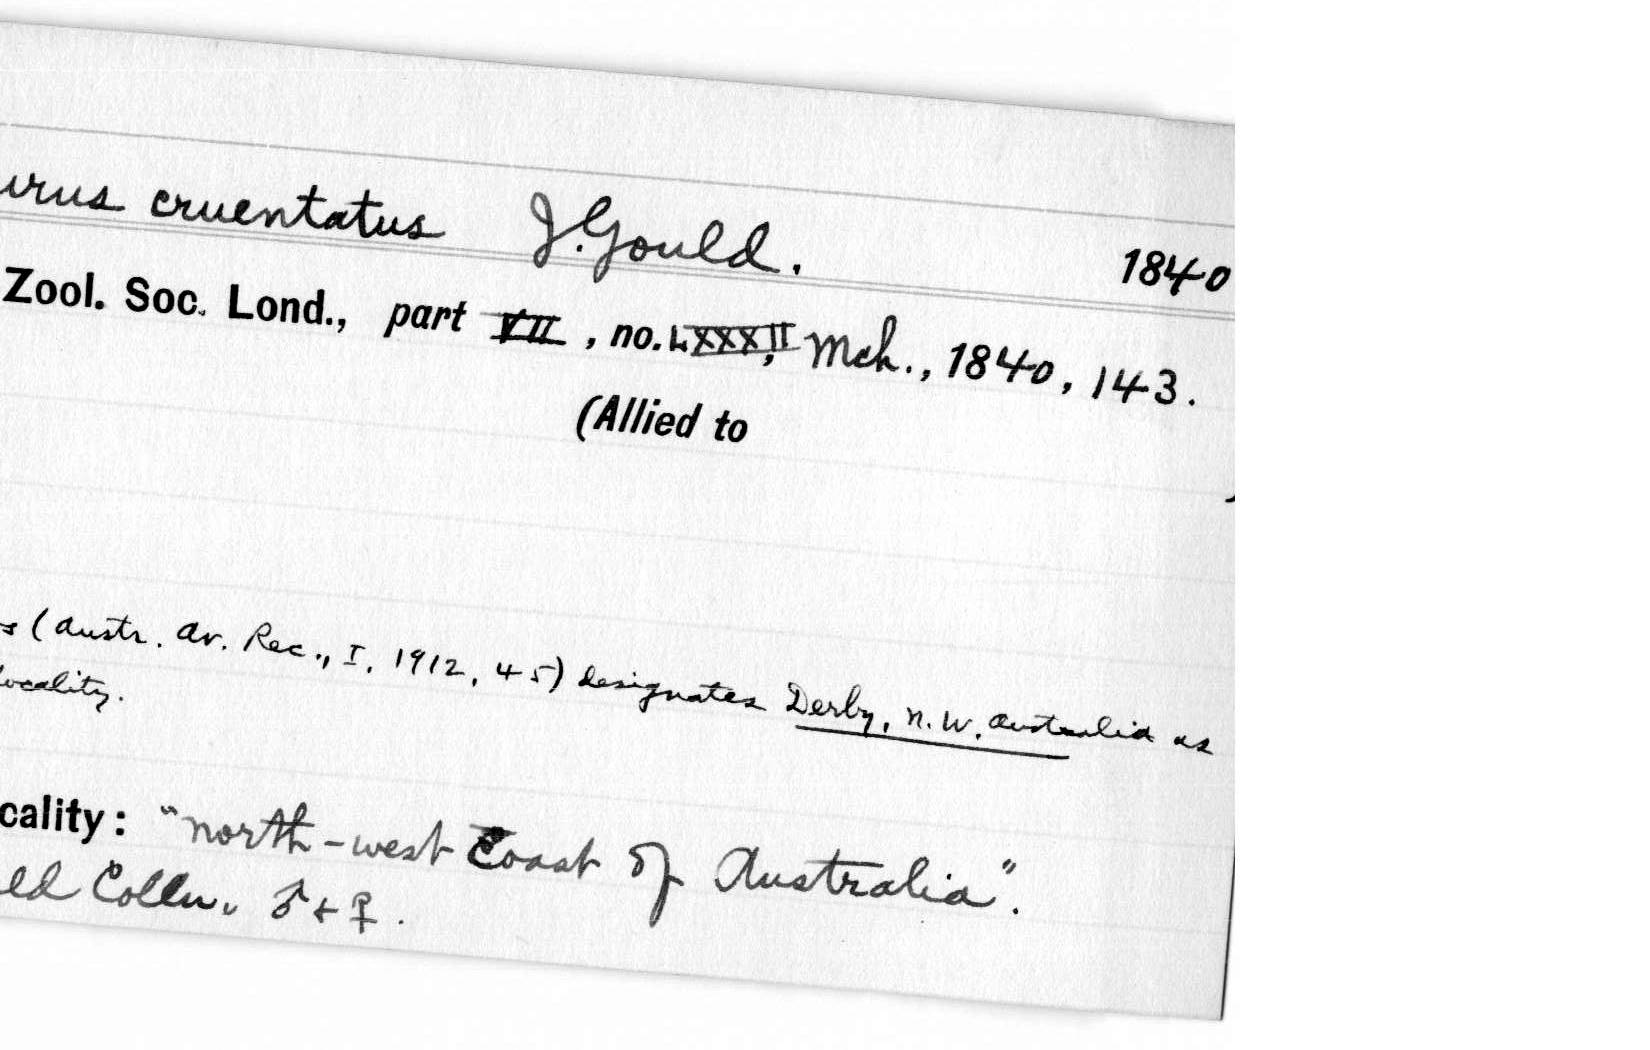 urus cruentatus J. Gould. 1840
Zool. Soc. Lond., part VII, no. LXXXII, Mch., 1840, 143.
(Allied to
)
s (Austr. Av. Rec., I, 1912, 45) designates Derby, N.W. Australia as
locality.
cality: "North-west Coast of Australia".
ld Colln. ♂ + ♀.